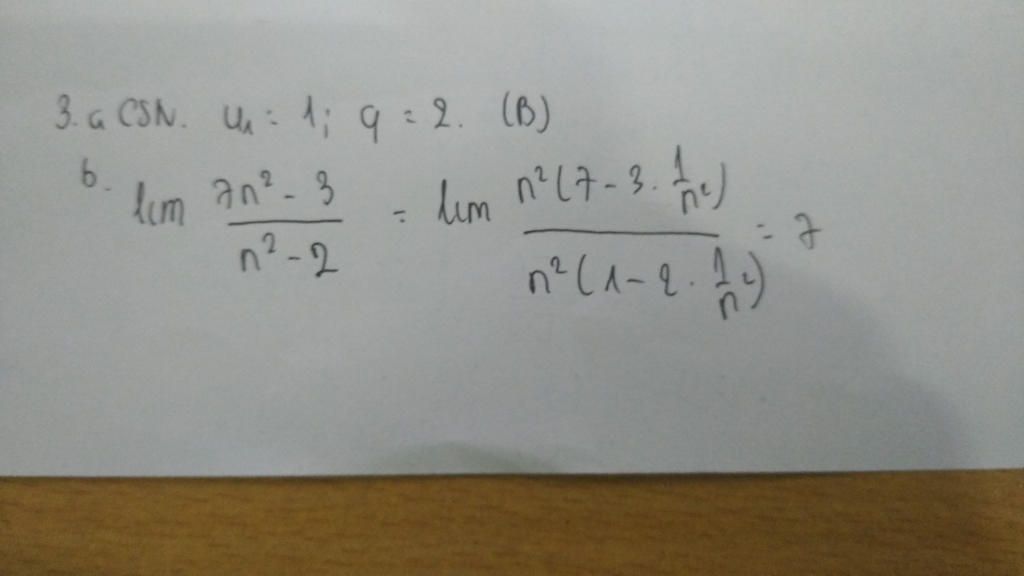 3. a CSN. u₁ = 1; q = 2. (B)
b. lim (7n² - 3)/(n² - 2) = lim (n²(7 - 3 · 1/n²))/(n²(1 - 2 · 1/n²)) = 7